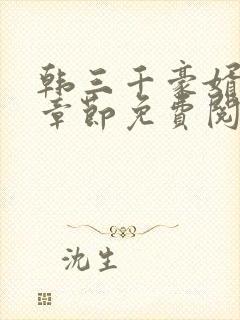 韩三千豪婿
章节免费阅
沈生